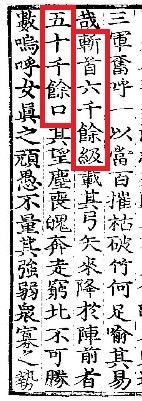 三軍奮呼一以當百摧枯破竹何足喻其易
哉斬首六千餘級載其弓矢來降於陣前者
五十千餘口其望塵喪魄奔走窮北不可勝
數嗚呼女眞之頑愚不量其強弱衆寡之勢